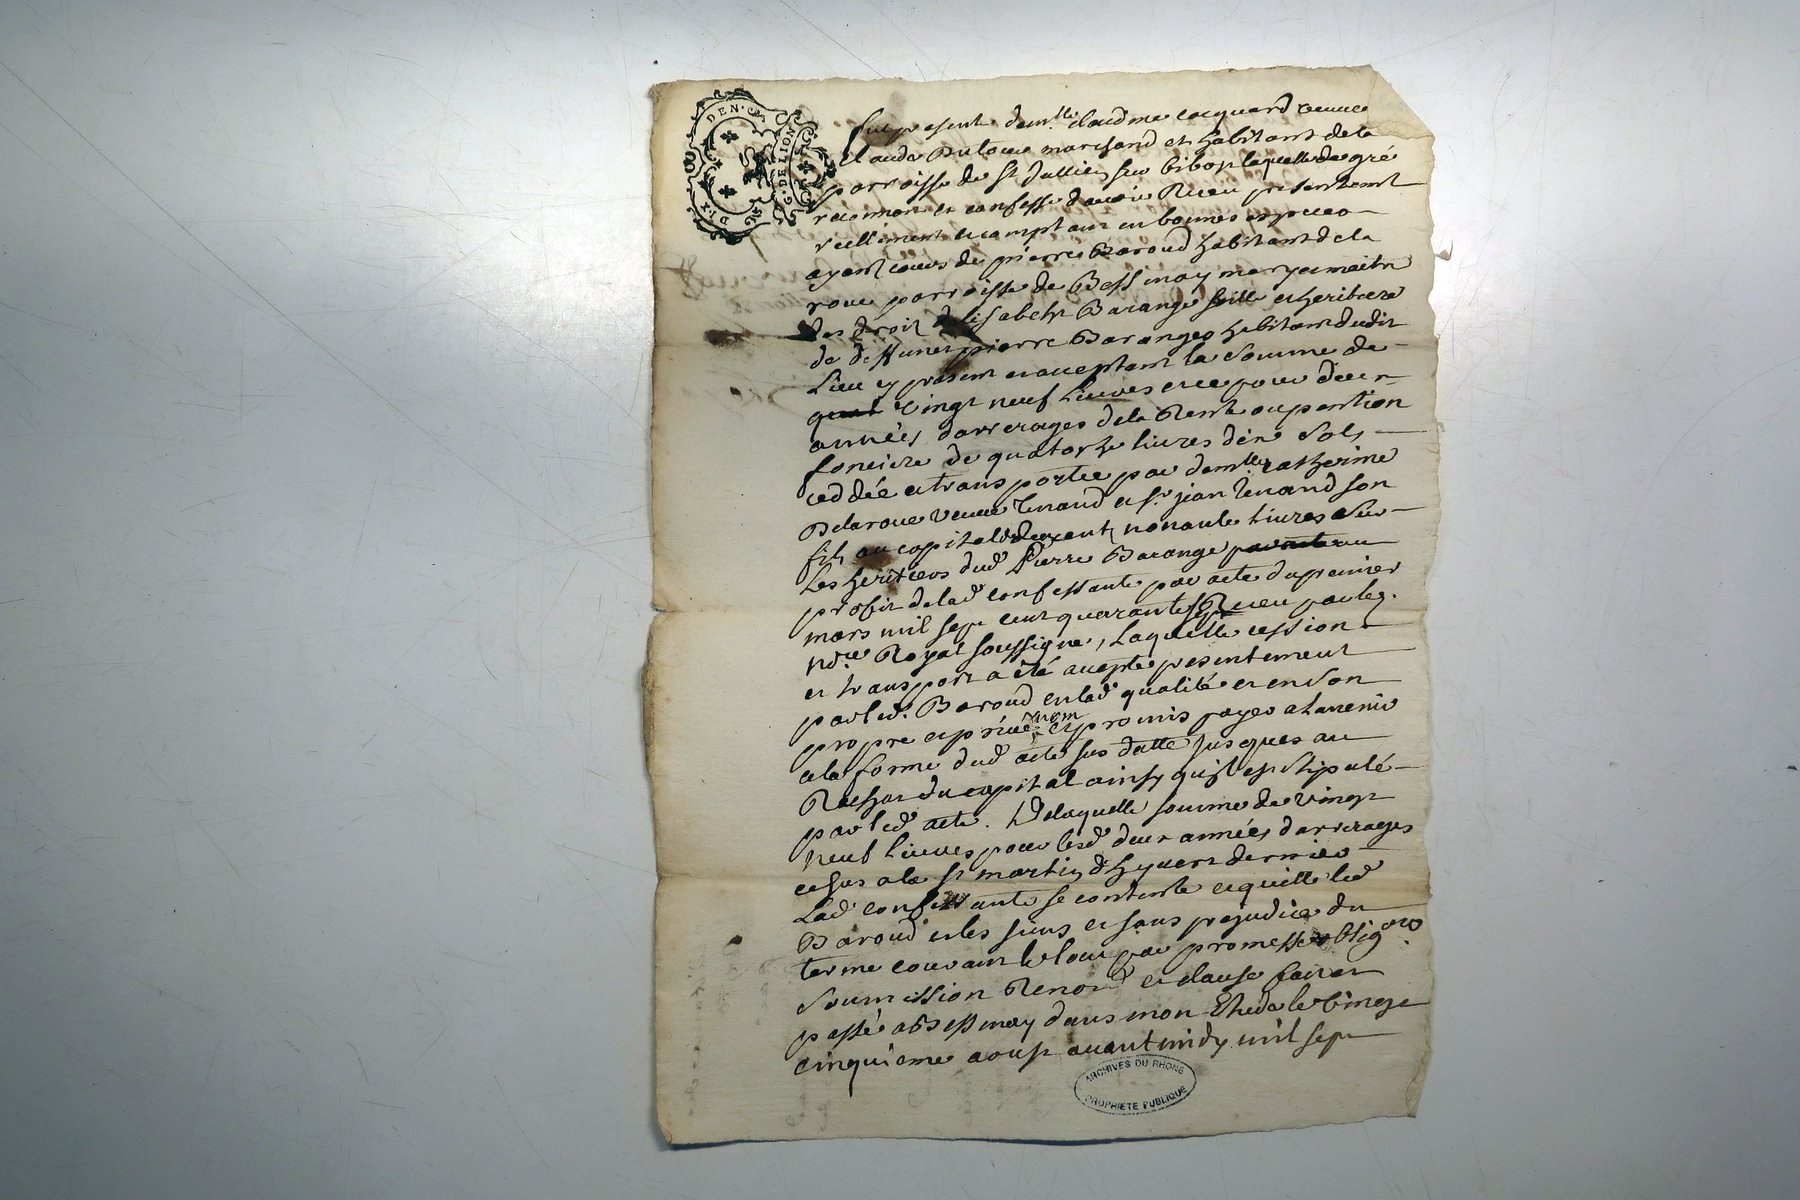 DEN.
G. DE LION
DIX
fut presente dem.lle claudine coquard veuve
Claude Dutoure marchand et habitant de la
parroisse de St Jullien sur bibost laquelle de gré
reconnoit et confesse d'avoir Receu presentement
reellement et comptant en bonnes especes
ayant cours de pierre Baroud habitant de la
roue parroisse de Bessinay mary et maitre
des droit d'elisabeth Barange fille et heritiere
de deffunct pierre Barange habitant dudit
Lieu cy present et acceptant la somme de
vingt neuf Livres et ce pour deux
années d'arrerages de la Rente ou pention
fonciere de quatorze livres dix sols
ceddée et transportée par dem.lle catherine
Delaroue veuve Tenand et sr. jean Tenand son
fils au capital de deux cent nonante livres sur
Les heritiers dud Pierre Barange au
profit de lad confessante par acte du premier
mars mil sept cent quarante sept Receu par le
no.re Royal soussigné, Laquelle cession
et transport a été accepté presentement
par led. Baroud en lad qualité et en son
propre et privé nom et promis payer a l'avenir
a la forme dud acte sus datté jusques au
Rachat du capital ainsy qu'il est stipulé
par led acte. De laquelle somme de vingt
neuf Livres pour lesd deux années d'arrerages
echus a la St martin d'hyvert dernier
Lad confessante se contente et quitte led
Baroud et les siens et sans prejudice du
terme courant le tout par promesse oblig.on
soumission Renon.d et clause fait et
passé a Bessinay dans mon Etude le vingt
cinquieme aoust avant midy mil sept
ARCHIVES DU RHONE
PROPRIETE PUBLIQUE